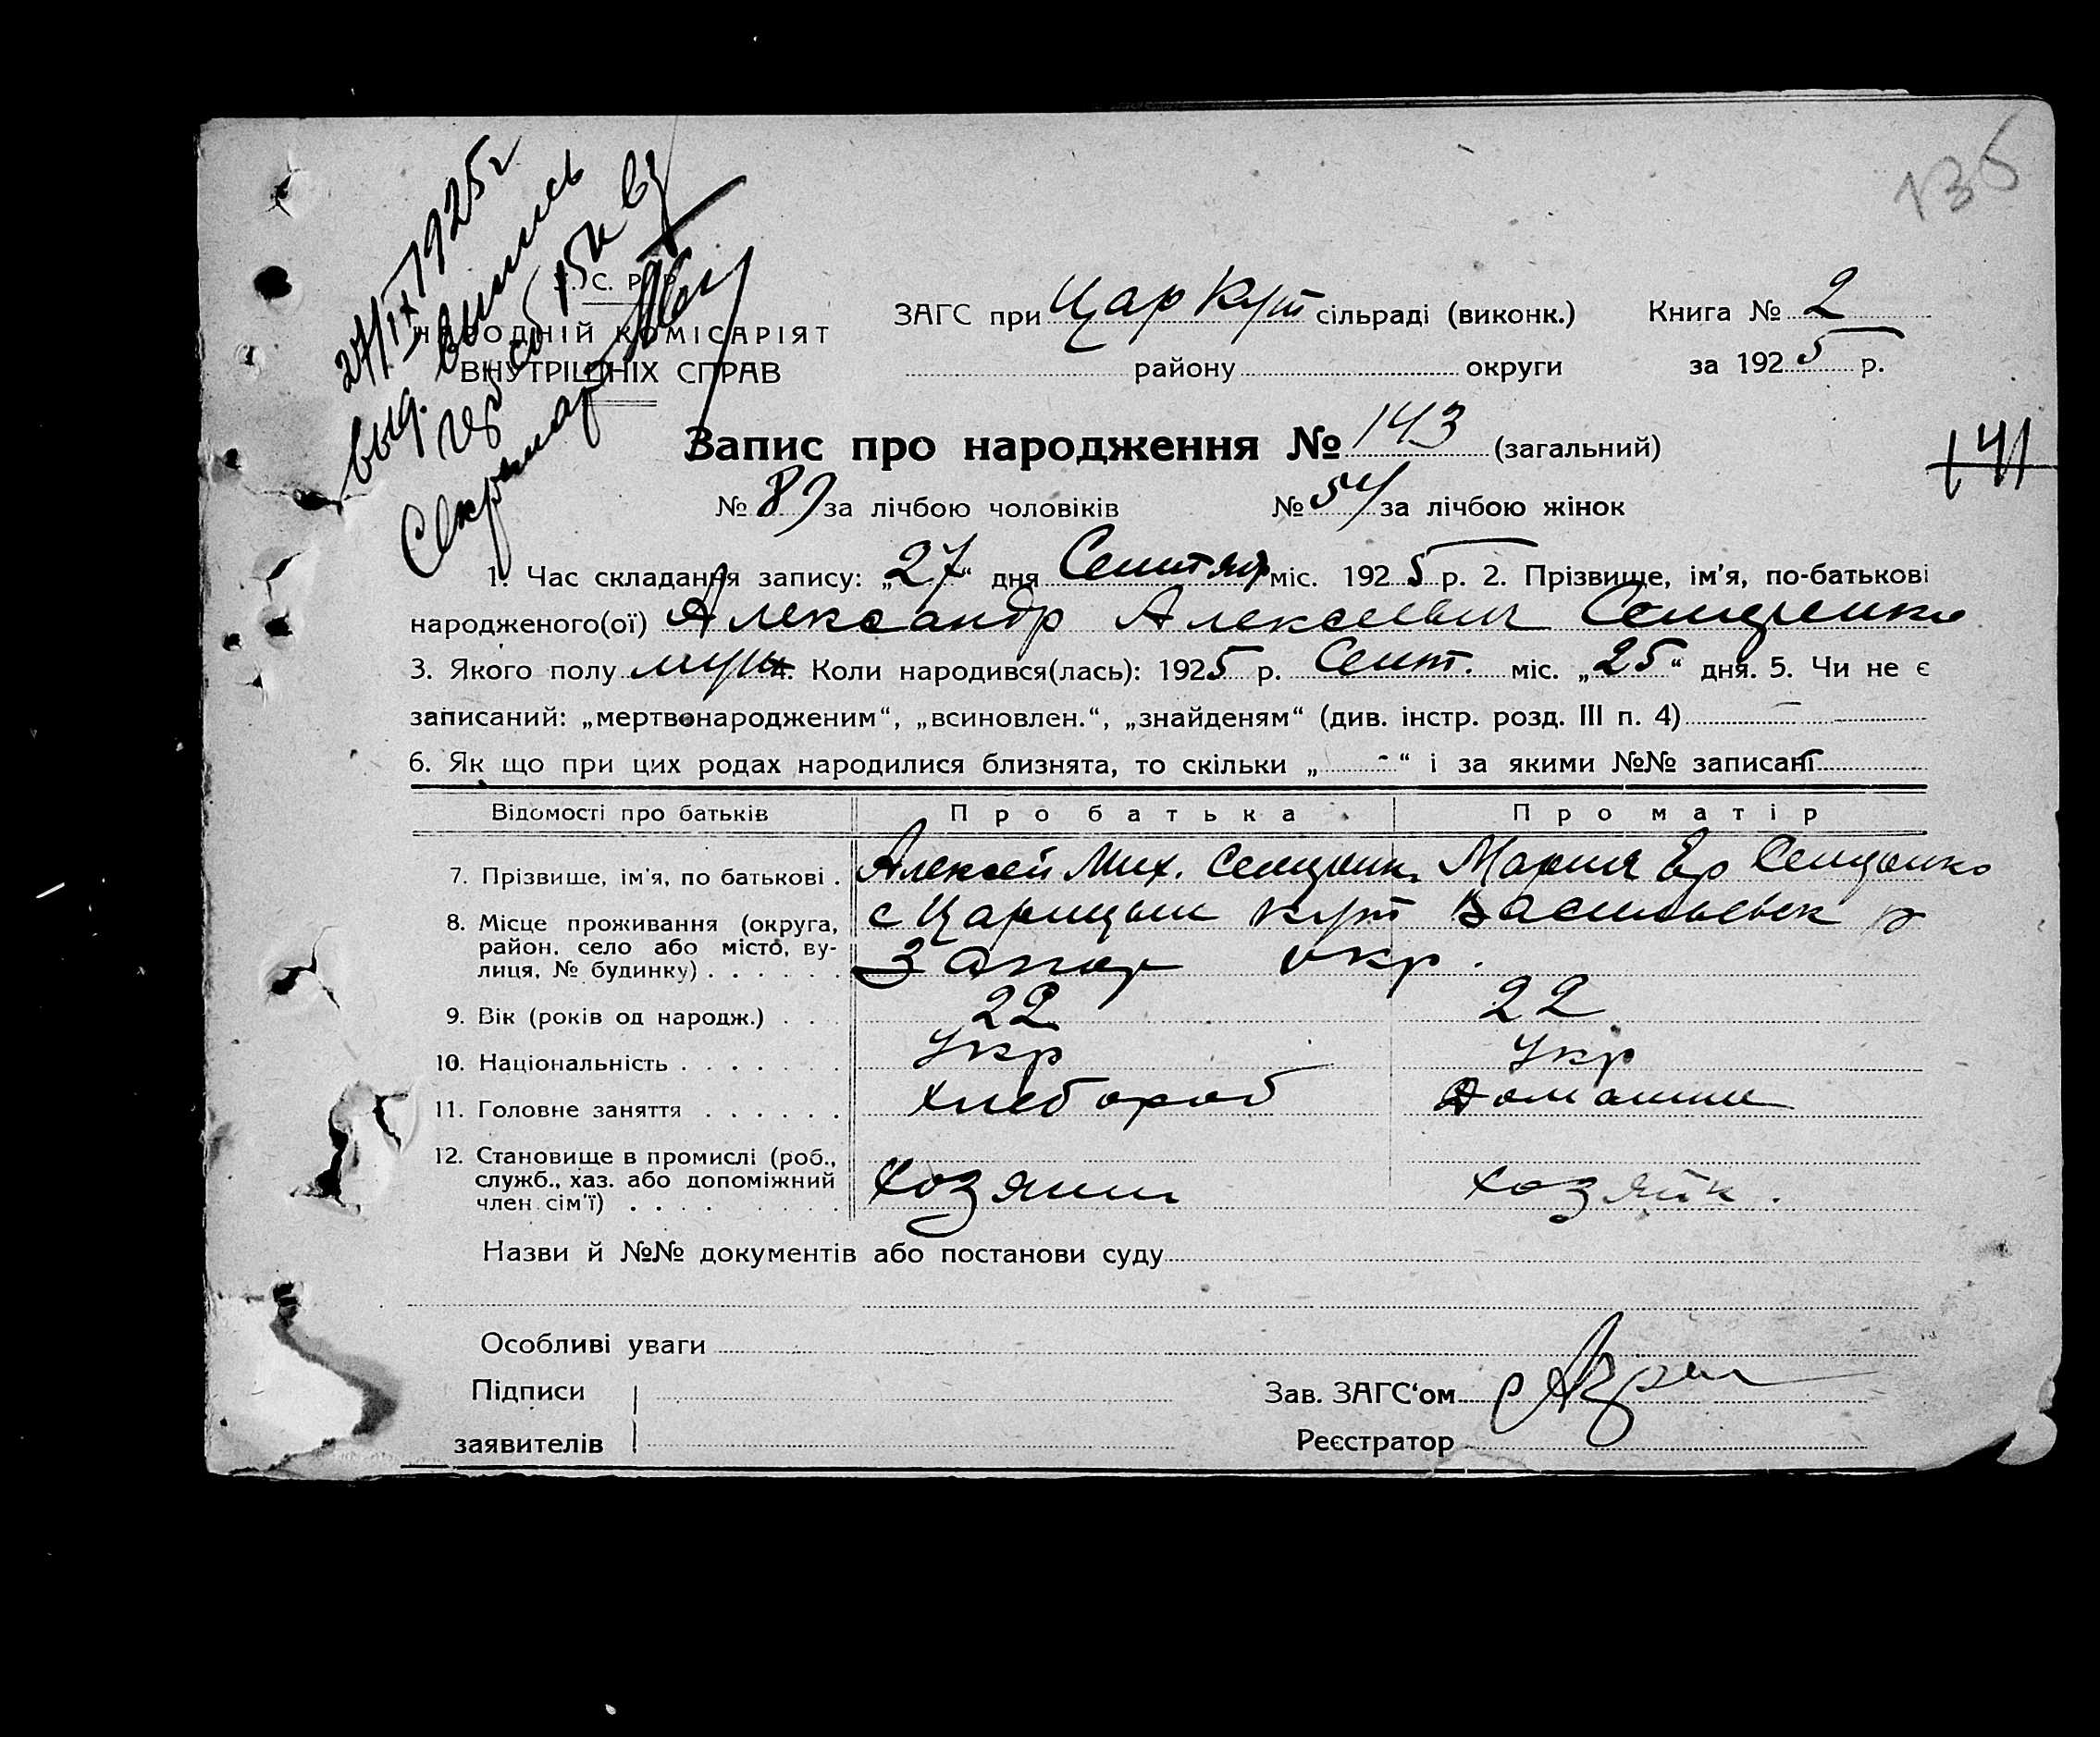 135
27/IX 1925 г
выд. выпись
Секретар
У. С. Р. Р.
НАРОДНІЙ КОМІСАРІЯТ
ВНУТРІШНІХ СПРАВ
ЗАГС при Цар Кут сільраді (виконк.) Книга № 2
району округи за 1925 р.
Запис про народження № 143 (загальний)
141
№ 89 за лічбою чоловіків № 54 за лічбою жінок
1. Час складання запису: „27“ дня Сентяб міс. 1925 р. 2. Прізвище, ім'я, по-батькові
народженого(ої) Александр Алексеевич
3. Якого полу муж 4. Коли народився(лась): 1925 р. Сент. міс. „25“ дня. 5. Чи не є
записаний: „мертвонародженим“, „всиновлен.“, „знайденям“ (див. інстр. розд. III п. 4) —
6. Як що при цих родах народилися близнята, то скільки „-“ і за якими №№ записані
Відомості про батьків Про батька Про матір
7. Прізвище, ім'я, по батькові . Алексей Мих. Мария
8. Місце проживання (округа, с Царицын Кут Васильевск р
район, село або місто, ву-
лиця, № будинку) . . . . . . Запор окр.
9. Вік (років од народж.) . . . 22 22
10. Національність . . . . . . . Укр Укр
11. Головне заняття . . . . . . Хлебороб Домашни
12. Становище в промислі (роб.,
служб., хаз. або допоміжний Хозяин хозяйк.
член сім'ї) . . . . . . . .
Назви й №№ документів або постанови суду
Особливі уваги
Підписи Зав. ЗАГС'ом
заявителів Реєстратор